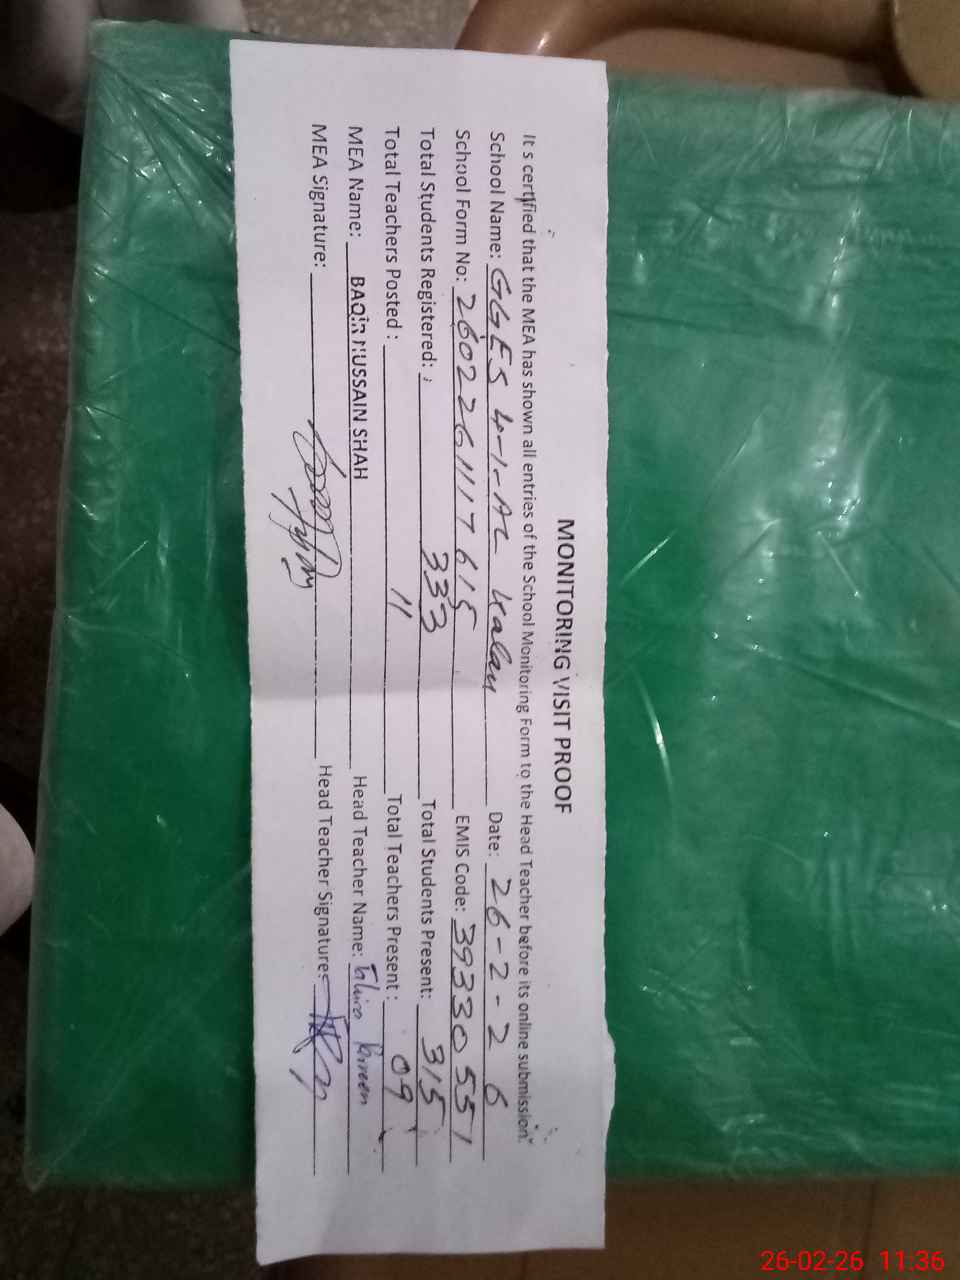 MONITORING VISIT PROOF
It s certified that the MEA has shown all entries of the School Monitoring Form to the Head Teacher before its online submission.
School Name: GGES 4-1-AL Kalan Date: 26-2-26
School Form No: 2602261117615 EMIS Code: 39330551
Total Students Registered: 333 Total Students Present: 315
Total Teachers Posted : 11 Total Teachers Present : 09
MEA Name: BAQIR HUSSAIN SHAH Head Teacher Name:
MEA Signature: Head Teacher Signature:
26-02-26 11:36